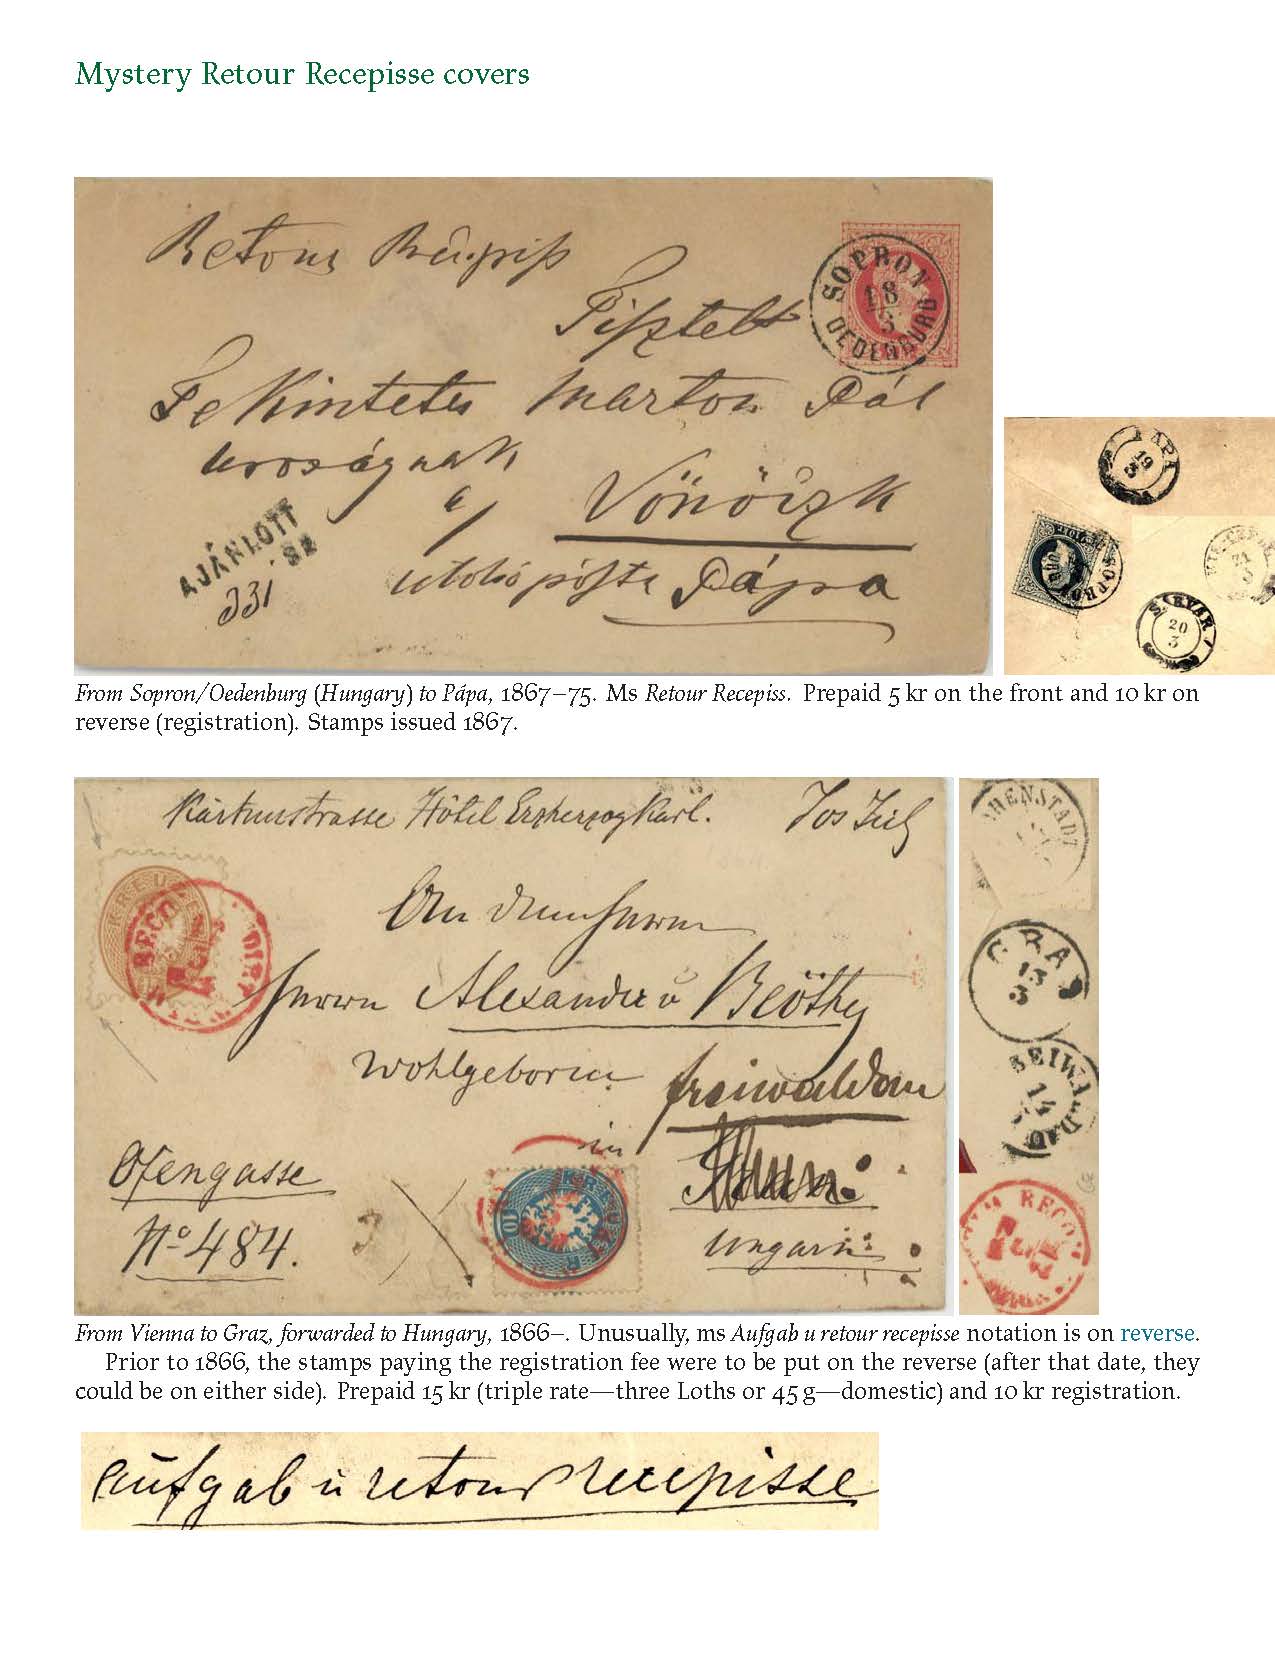 Mystery Retour Recepisse covers
Retour Recipiss
SOPRON
18
3
OEDENBURG
Tisztelt
Tekintetes Marton Pál
uroságnak
Vönöczk
utolsó pósta Pápa
AJÁNLOTT
331
PAPA
19
3
SOPRO
SARVAR
20
3
From Sopron/Oedenburg (Hungary) to Pápa, 1867–75. Ms Retour Recepiss. Prepaid 5 kr on the front and 10 kr on
reverse (registration). Stamps issued 1867.
Kärtnerstrasse Hôtel Erzherzog Karl.
An den Herrn
Herrn Alexander v Beöthy
Wohlgeboren
freiwaldau
in
Ofengasse
No 484.
Ungarn
KREUZER
10
RECO
GRA
13
3
EIWALDAU
14
RECO
From Vienna to Graz, forwarded to Hungary, 1866–. Unusually, ms Aufgab u retour recepisse notation is on reverse.
Prior to 1866, the stamps paying the registration fee were to be put on the reverse (after that date, they
could be on either side). Prepaid 15 kr (triple rate—three Loths or 45 g—domestic) and 10 kr registration.
Aufgab u retour recepisse